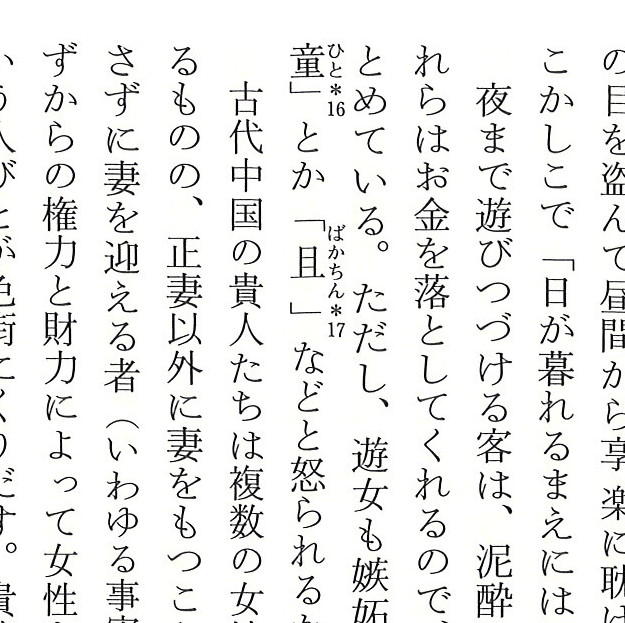 の目を盗んで昼間から享楽に耽
こかしこで「日が暮れるまえには
夜まで遊びつづける客は、泥酔
れらはお金を落としてくれるので、
とめている。ただし、遊女も嫉妬
童」ひと*16とか「且」ばかちん*17などと怒られるな
古代中国の貴人たちは複数の女
るものの、正妻以外に妻をもつこ
さずに妻を迎える者（いわゆる事実
ずからの権力と財力によって女性
いう人びとが色街にくりだす。貴